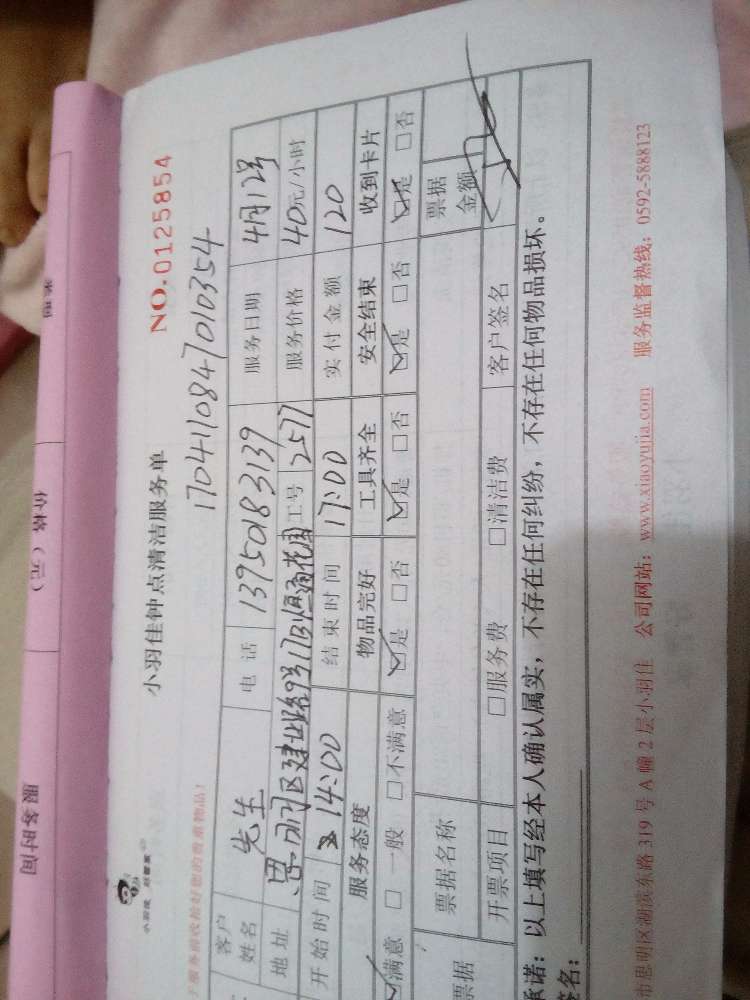 小羽佳 好管家
小羽佳钟点清洁服务单
NO.0125854
17041108470103​54
客户姓名 先生 电话 13950183139 服务日期 4月12号
地址 思明区建业路9号17B恒通花园 工号 2577 服务价格 40元/小时
开始时间 14:00 结束时间 17:00 实付金额 120
服务态度 物品完好 工具齐全 安全结束 收到卡片
☑满意 □一般 □不满意 ☑是 □否 ☑是 □否 ☑是 □否 ☑是 □否
票据 票据名称 票据金额
开票项目 □服务费 □清洁费 客户签名
承诺:以上填写经本人确认属实,不存在任何纠纷,不存在任何物品损坏。
签名:
市思明区湖滨东路319号A幢2层小羽佳 公司网站:www.xiaoyujia.com 服务监督热线:0592-5888123
服务时间 价格(元)